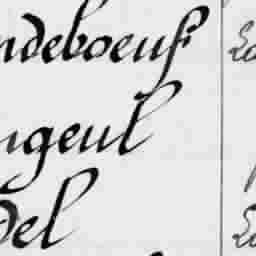 ndeboeuf
ngeul
del